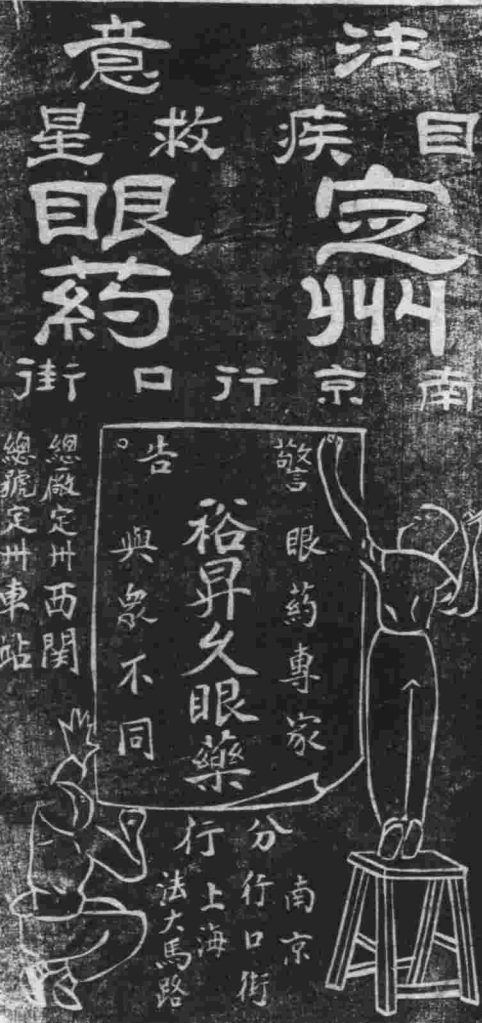 注意
目疾救星
㝎州
眼葯
南京行口街
警告。
眼葯專家
裕昇久眼藥
與眾不同
總廠定州西関
總號定州車站
分行
南京行口街
上海法大馬路